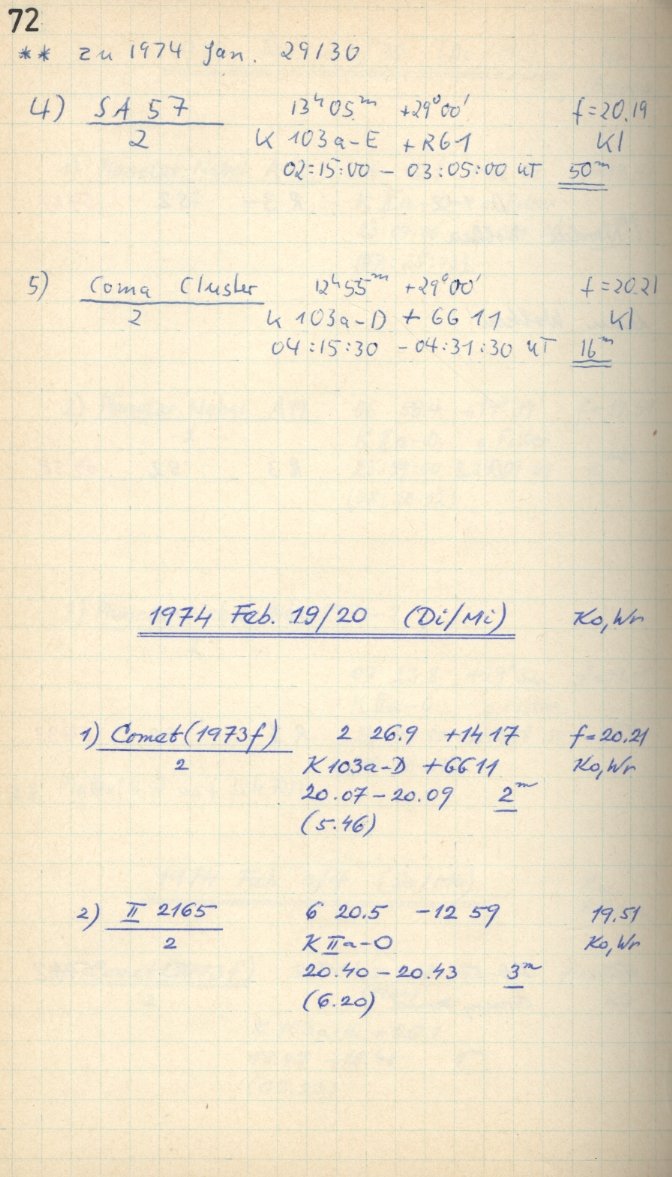 72
** zu 1974 Jan. 29/30
4) SA 57 13ʰ05ᵐ +29°00' f=20.19
2 K 103a-E + RG1 Kl
02:15:00 - 03:05:00 UT 50ᵐ
5) Coma Cluster 12ʰ55ᵐ +29°00' f=20.21
2 K 103a-D + GG11 Kl
04:15:30 - 04:31:30 UT 16ᵐ
1974 Feb. 19/20 (Di/Mi) Ko, Wr
1) Comet (1973f) 2 26.9 +14 17 f=20.21
2 K 103a-D + GG11 Ko, Wr
20.07 - 20.09 2ᵐ
(5.46)
2) II 2165 6 20.5 -12 59 19.51
2 K IIa-O Ko, Wr
20.40 - 20.43 3ᵐ
(6.20)